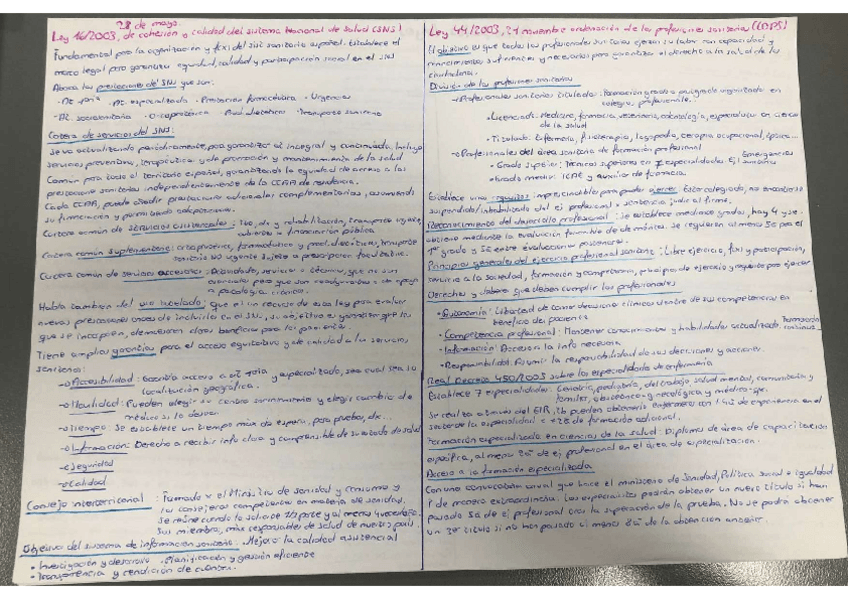 28 de mayo.
Ley 16/2003, de cohesión y calidad del sistema Nacional de Salud (SNS)
Fundamental para la organización y del sist sanitario español. Establece el
marco legal para garantizar equidad, calidad y participación social en el SNS
Abarca las prestaciones del SNS que son:
· At. · At. especializada · Prestación farmacéutica · Urgencias
· At. sociosanitaria · Ortoprotésica · Prod. dietéticos · Transporte sanitario
Cartera de servicios del SNS:
Se va actualizando periódicamente, para garantizar at integral y continuada. Incluye
servicios preventivos, terapéuticos y de promoción y mantenimiento de la salud
Común para todo el territorio español, garantizando la equidad de acceso a las
prestaciones sanitarias independientemente de la CCAA de residencia.
Cada CCAA, puede añadir prestaciones adicionales complementarias, asumiendo
su financiación y
Cartera común de servicios asistenciales: dx y rehabilitación, transporte urgente,
cubiertos x financiación pública
Cartera común suplementaria: ortoprótesis, farmacéutica y prod. dietéticos, transporte
sanitario no urgente sujeto a prescripción facultativa.
Cartera común de servicios accesorios: servicios o técnicas, que no son
esenciales pero que son de apoyo
a patología crónica.
Habla también del uso tutelado: que es un recurso de esta ley para evaluar
nuevas prestaciones antes de incluirlo en el SNS, su objetivo es garantizar que las
que se incorporen, demuestren claros beneficios para los pacientes.
Tiene amplias garantías para el acceso equitativo y de calidad a los servicios
sanitarios:
→ Accesibilidad: Garantiza acceso a at 1ria y especializada, sea cual sea su
localización geográfica.
→ Movilidad: Pueden elegir su centro sanitario y elegir cambio de
médico si lo desea.
→ Tiempo: Se establece un tiempo máx de espera, para pruebas, dx...
→ Información: Derecho a recibir info clara y comprensible de su estado de salud
→ Seguridad
→ Calidad
Consejo interterritorial: Formado x el Ministerio de sanidad y consumo y
los consejeros competentes en materia de sanidad.
Se reúne cuando lo solicite 1/3 parte y al menos 4 veces/año.
Sus miembros, max responsables de salud de nuestro país.
Objetivo del sistema de información sanitario: · Mejora la calidad asistencial
· Investigación y desarrollo · Planificación y gestión eficiente
· Transparencia y rendición de cuentas.
Ley 44/2003, 21 noviembre ordenación de las profesiones sanitarias (LOPS)
El objetivo es que todos los profesionales sanitarios ejerzan su labor con capacidad y
conocimientos suficientes y necesarios para garantizar el derecho a la salud de los
ciudadanos.
División de las profesiones sanitarias
→ Profesionales sanitarios titulados: Formación grado o postgrado organizada en
colegios profesionales.
· Licenciado: Medicina, farmacia, veterinaria, odontología, especialistas en ciencias
de la salud
· Titulado: Enfermería, fisioterapia, logopeda, terapia ocupacional, óptica...
→ Profesionales del área sanitaria de formación profesional
· Grado superior: Técnicos superiores en 7 especialidades. Ej sanitarias Emergencias
· Grado medio: TCAE y auxiliar de farmacia.
Establece unos requisitos: imprescindibles para poder ejercer: Estar colegiado, no encontrarse
suspendido/inhabilitado del ej profesional x sentencia judicial firme.
Reconocimiento del desarrollo profesional: Se establece mediante grados, hay 4 y se
obtiene mediante la evaluación formativa de de méritos. Se requieren al menos 5a para el
1er grado y 5a entre evaluaciones posteriores.
Principios generales del ejercicio profesional sanitario: Libre ejercicio, fxs y participación,
servicio a la sociedad, formación y competencia, principios de ejercicio y requisitos para ejercer
Derechos y deberes que deben cumplir los profesionales
· Autonomía: Libertad de tomar decisiones clínicas dentro de sus competencias en
beneficio del paciente
· Competencia profesional: Mantener conocimientos y habilidades actualizadas. Formación continua
· Información: Acceso a la info necesaria
· Responsabilidad: Asumir la responsabilidad de sus decisiones y acciones.
Real Decreto 450/2005 sobre las especialidades de enfermería
Establece 7 especialidades: Geriatría, pediatría, del trabajo, salud mental, comunitaria y
familiar, obstétrico-ginecológica y médico-qx.
Se realiza a través del EIR, tb pueden obtenerlo enfermeros con de experiencia en el
sector de la especialidad o +2a de formación adicional.
Formación especializada en ciencias de la salud: Diplomas de área de capacitación
específica, al menos 2a de ej profesional en el área de especialización.
Acceso a la formación especializada
Con una convocatoria anual que hace el ministerio de Sanidad, Política social e igualdad
1 de manera extraordinaria. Los especialistas podrán obtener un nuevo título si han
pasado 5a de ej profesional con la superación de la prueba. No se podrá obtener
un 3er título si no han pasado al menos 8a de la obtención anterior